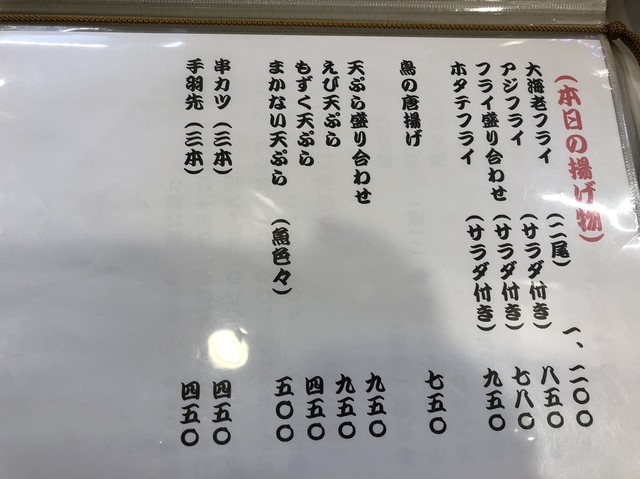 (本日の揚げ物)
大海老フライ (二尾) 一、二〇〇
アジフライ (サラダ付き) 八五〇
フライ盛り合わせ (サラダ付き) 七八〇
ホタテフライ (サラダ付き) 九五〇
鳥の唐揚げ 七五〇
天ぷら盛り合わせ 九五〇
えび天ぷら 九五〇
もずく天ぷら 四五〇
まかない天ぷら (魚色々) 五〇〇
串カツ (三本) 四五〇
手羽先 (三本) 四五〇